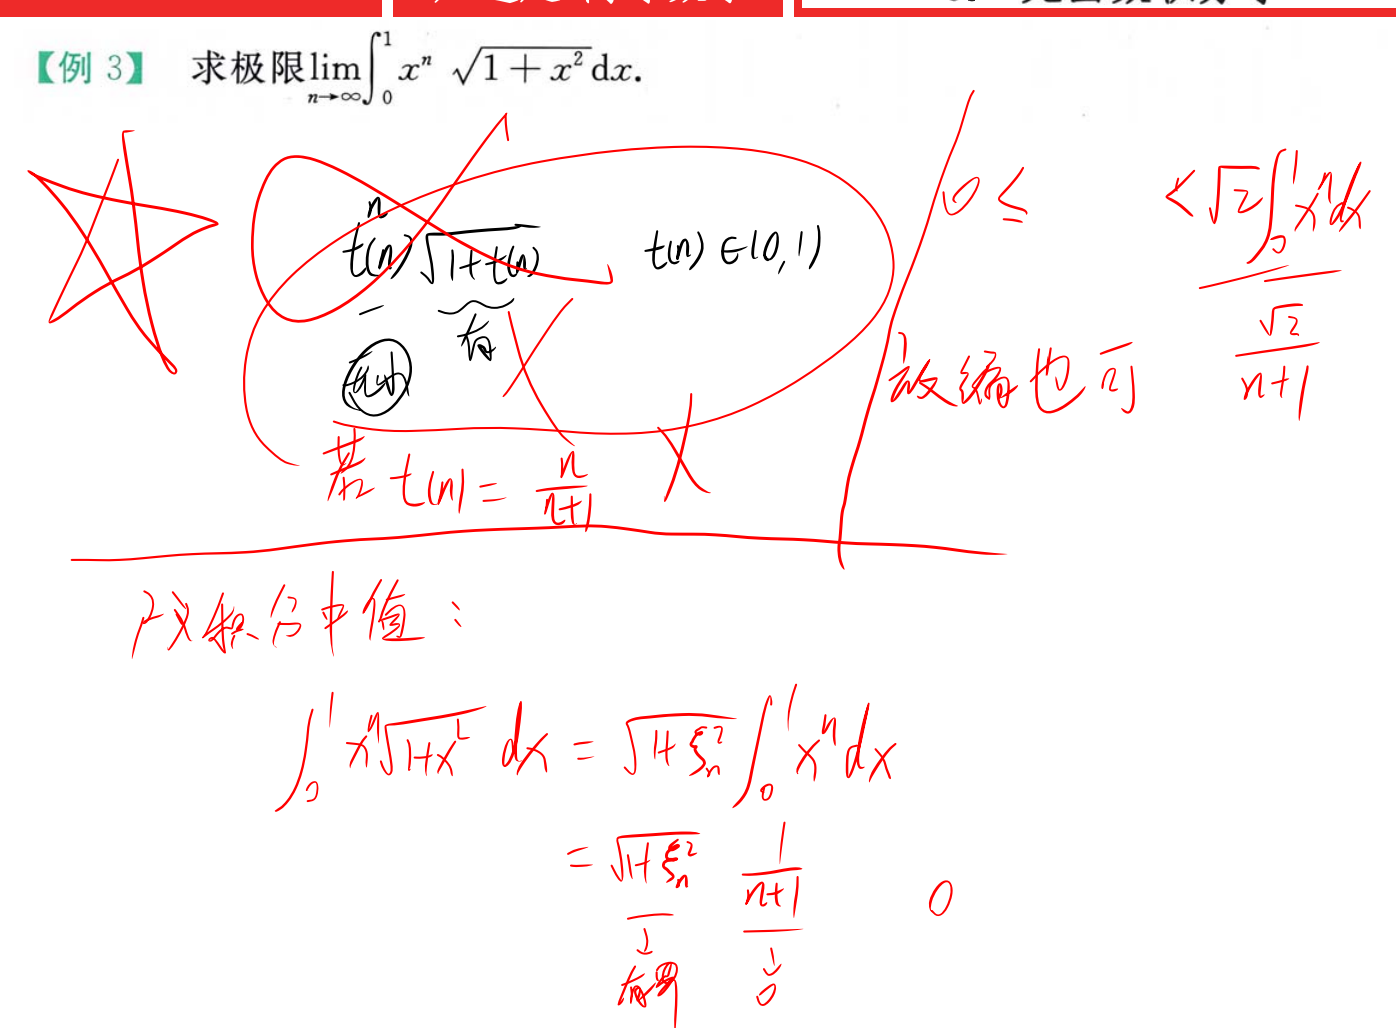 【例 3】 求极限lim_{n→∞}∫_0^1 x^n √(1+x²) dx.
t(n)^n √(1+t(n)) t(n) ∈ (0,1)
有
若 t(n) = n/(n+1)
0 ≤ < √2 ∫_0^1 x^n dx
√2/(n+1)
放缩也可
广义积分中值:
∫_0^1 x^n √(1+x²) dx = √(1+ξ_n²) ∫_0^1 x^n dx
= √(1+ξ_n²) 1/(n+1) 0
↓ ↓
有界 0